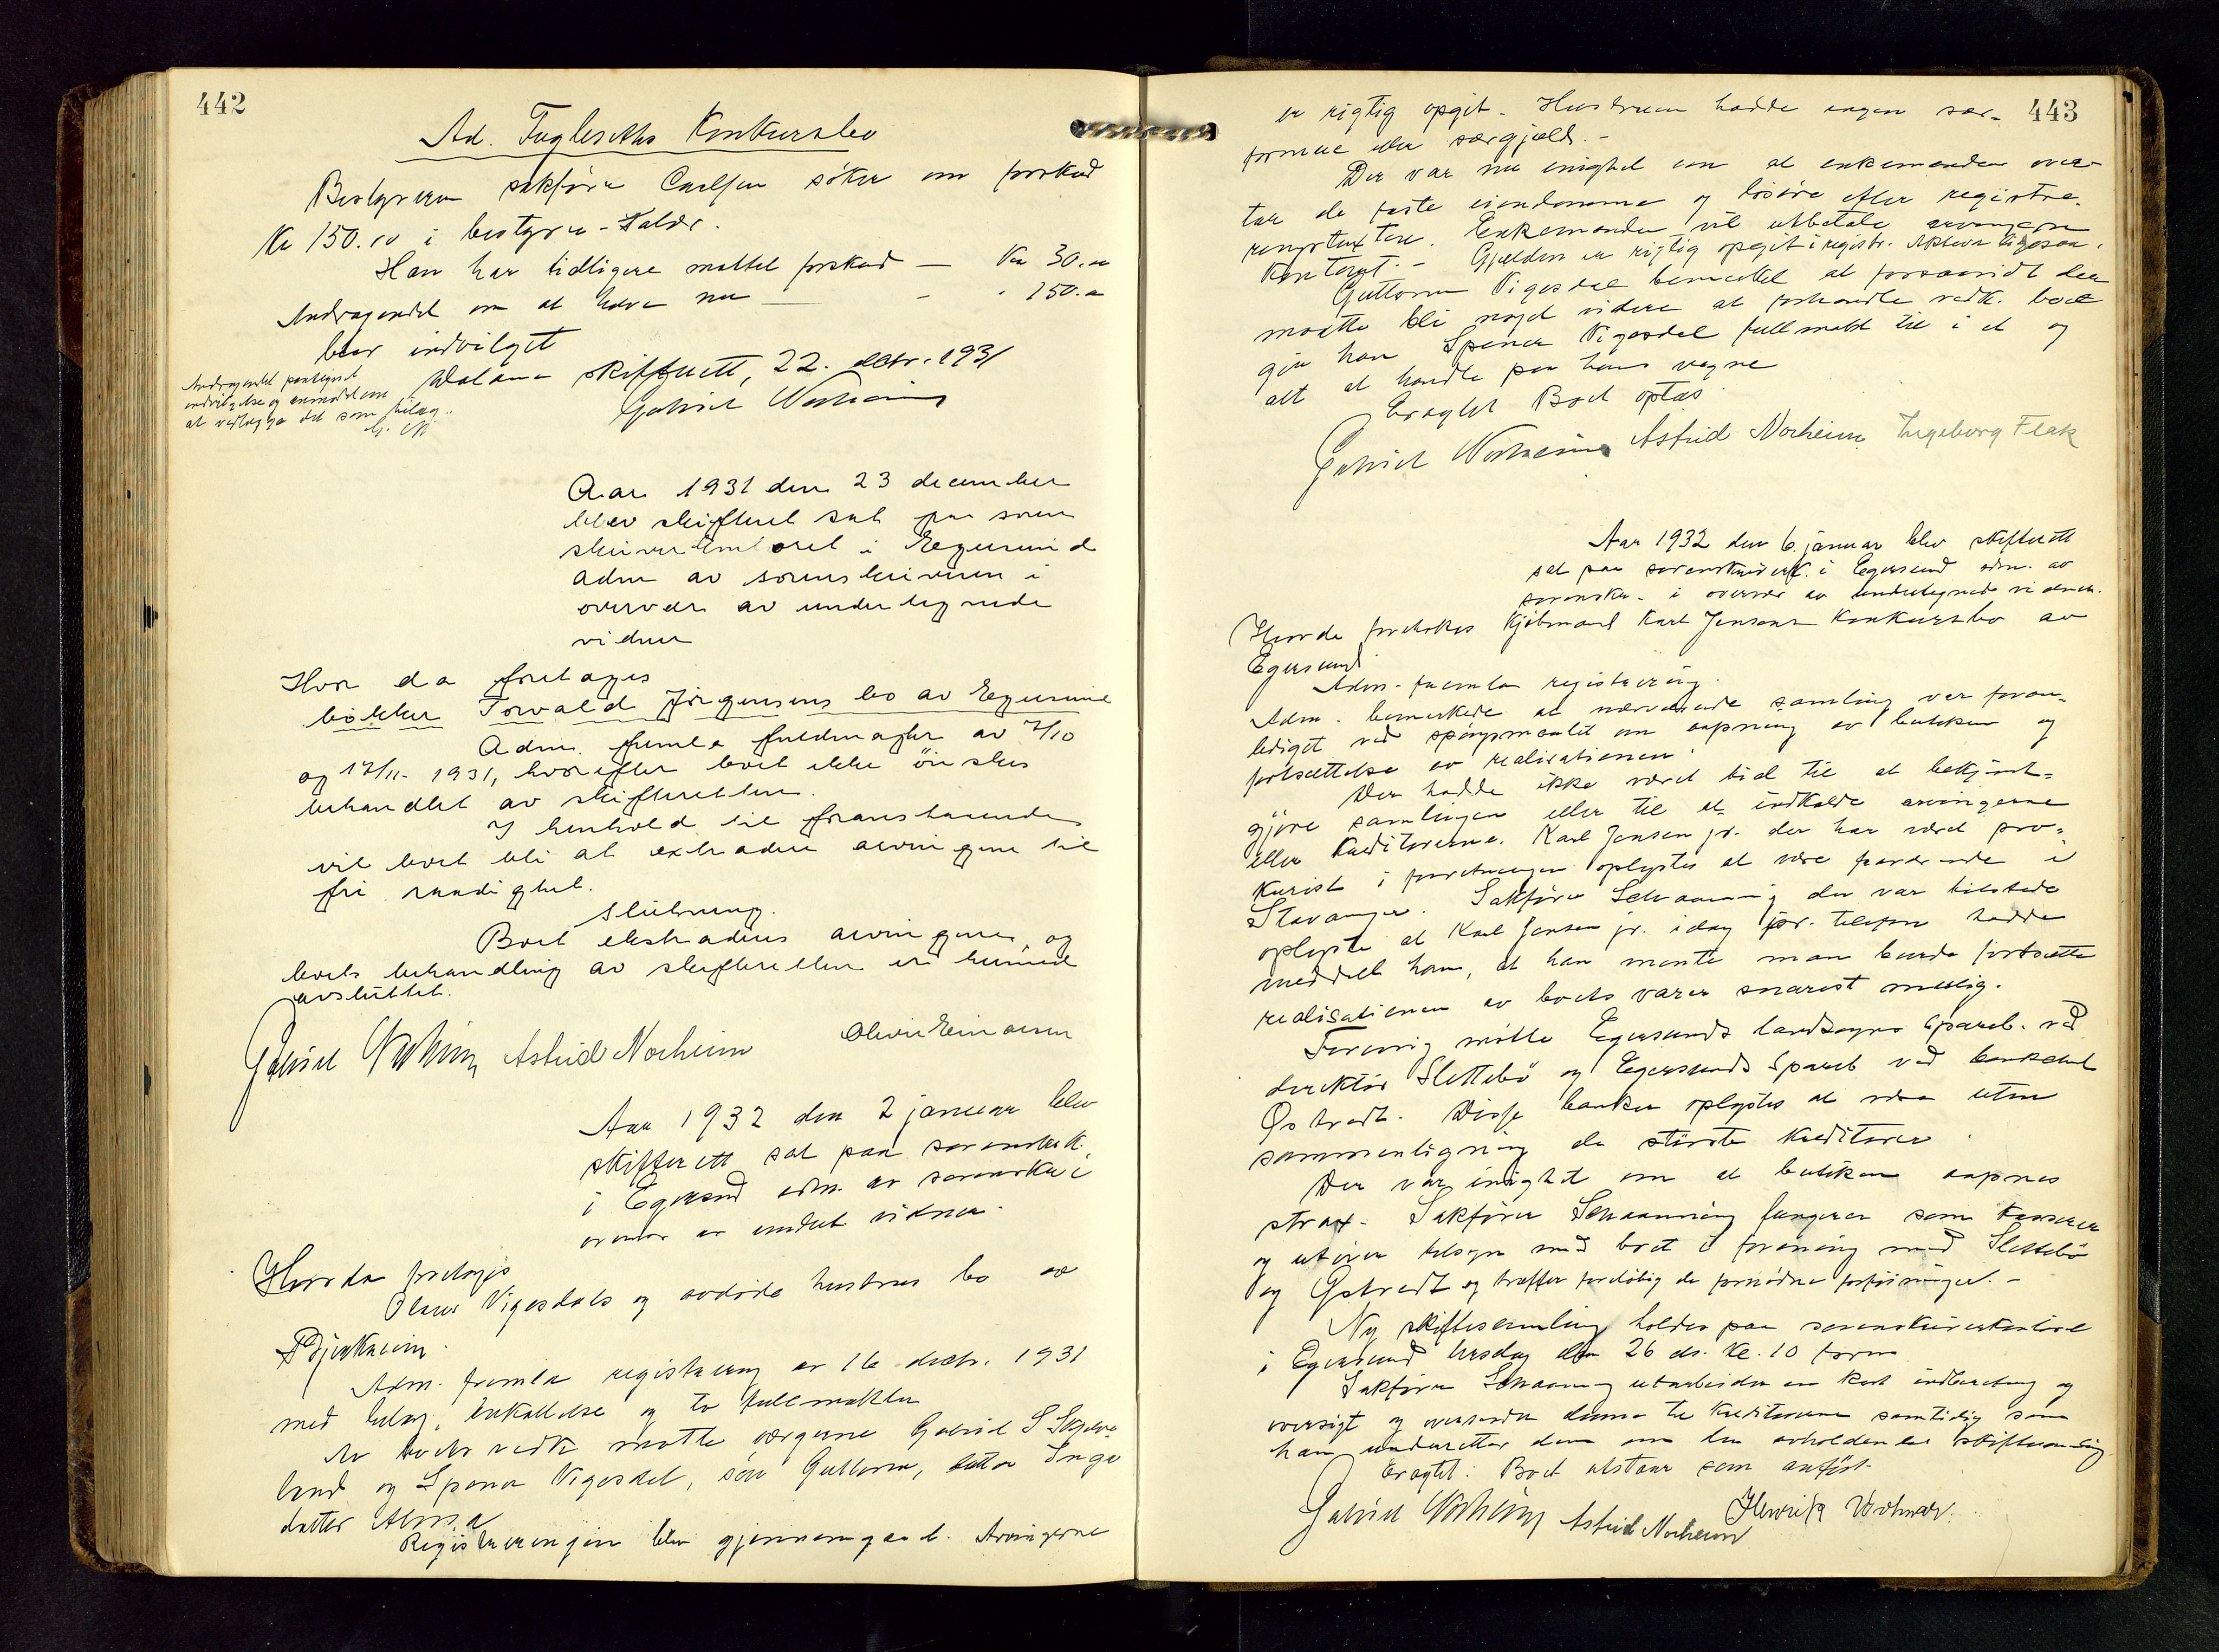 442
Ad. Fuglseths Konkursbo
Bestyreren sakfører Carlsen søker om forskud
Kr 150.00 i bestyrer-salær.
Han har tidligere mottat forskud — Kr 30.00
Andragendet om at have nu — - " 150.00
blev indvilget
Dalane skifterett, 22. decbr. 1931
Gabriel Norheim
Andragendet paategnet
indvilgelse og anmodet om
at vedlægge det som bilag.
G. N.
Aar 1931 den 23 december
blev skifteret sat paa soren
skriverkontoret i Egersund
adm av sorenskriveren i
overvær av undertegnede
vidner
Hvor da foretages
bøkker Torvald Jørgensens bo av Egersund
Adm. fremla fuldmagter av 7/10
og 17/11- 1931, hvorefter boet ikke ønskes
behandlet av skifteretten.
I henhold til foranstaaende
vil boet bli at extradere arvingene til
fri raadighet.
Slutning.
Boet ekstraderes arvingene, og
boets behandling av skifteretten er hermed
avsluttet.
Gabriel Norheim Astrid Norheim Olivia Einarsen
Aar 1932 den 2 januar blev
skifterett sat paa sorenskr.k.
i Egersund adm. av sorenskr. i
overvær av undert vidner.
Hvor da foretages
Olaus Vigesdals og avdøde hustrus bo av
Bjerkreim.
Adm. fremla registrering av 16 decbr. 1931
med bilag, innkallelse og to fullmakter
Av boets vedk møtte værgerne Gabriel S Skjæve
land og Spener Vigesdal, søn Guttorm, datter Inga
datter Alma
Registreringen blev gjennemgaad. Arvingerne
443
er rigtig opgit. Hustruen hadde ingen sær-
formue eller særgjæld.-
Der var nu enighet om at enkemanden over-
tar de faste eiendomme og løsøre efter registre-
ringstaxten. Enkemanden vil utbetale arvingerne
kontant.- Gjælden er rigtig opgit i registr.
Guttorm Vigesdal bemerket at forsaavidt der
maatte bli noget videre at forhandle vedk. boet
gir han Spener Vigesdal fullmakt til i et og
alt at handle paa hans vegne
Eragtet Boet optas
Gabriel Norheim Astrid Norheim Ingeborg Flak
Aar 1932 den 6. januar blev skifterett
sat paa sorenskriverk. i Egersund adm. av
sorenskr. i overvær av undertegnede vidner.
Hvorda foretokes Kjøbmand Karl Jensens Konkursbo av
Egersund
Adm. fremla registrering.
Adm. bemerkede at nærværende samling var foran-
lediget ved spørgsmaalet om aapning av butikken og
fortsættelse av realisationen.
Der hadde ikke været tid til at bekjent-
gjøre samlingen eller til at indkalde arvingerne
eller kreditorerne. Karl Jensen jr. der har været pro-
kurist i forretningen oplystes at være fraværende i
Stavanger. Sakfører Schaanning der var tilstede
oplyste at Karl Jensen jr. idag pr. telefon hadde
meddelt ham, at han mente man burde fortsætte
realisationen av boets varer snarest mulig.
Forøvrig møtte Egersunds landsogns Spareb. ved
direktør Slettebø og Egersunds Spareb ved bankchef
Østredt. Disse banker oplystes at være uten
sammenligning de største kreditorer.
Der var enighet om at butiken aapnes
strax. Sakfører Schaanning fungerer som kasserer
og utøver tilsyn med boet i forening med Slettebø
og Østredt og træffer foreløbig de fornødne forføininger.-
Ny skiftesamling holdes paa sorenskriverkontoret
i Egersund tirsdag den 26 ds. kl. 10 form
Sakfører Schaanning utarbeider en kort indberetning og
oversigt og oversender denne til kreditorerne samtidig som
han underretter dem om den avholdende skiftesamling
Eragtet: Boet utstaar som anført.
Gabriel Norheim Astrid Norheim Henrik